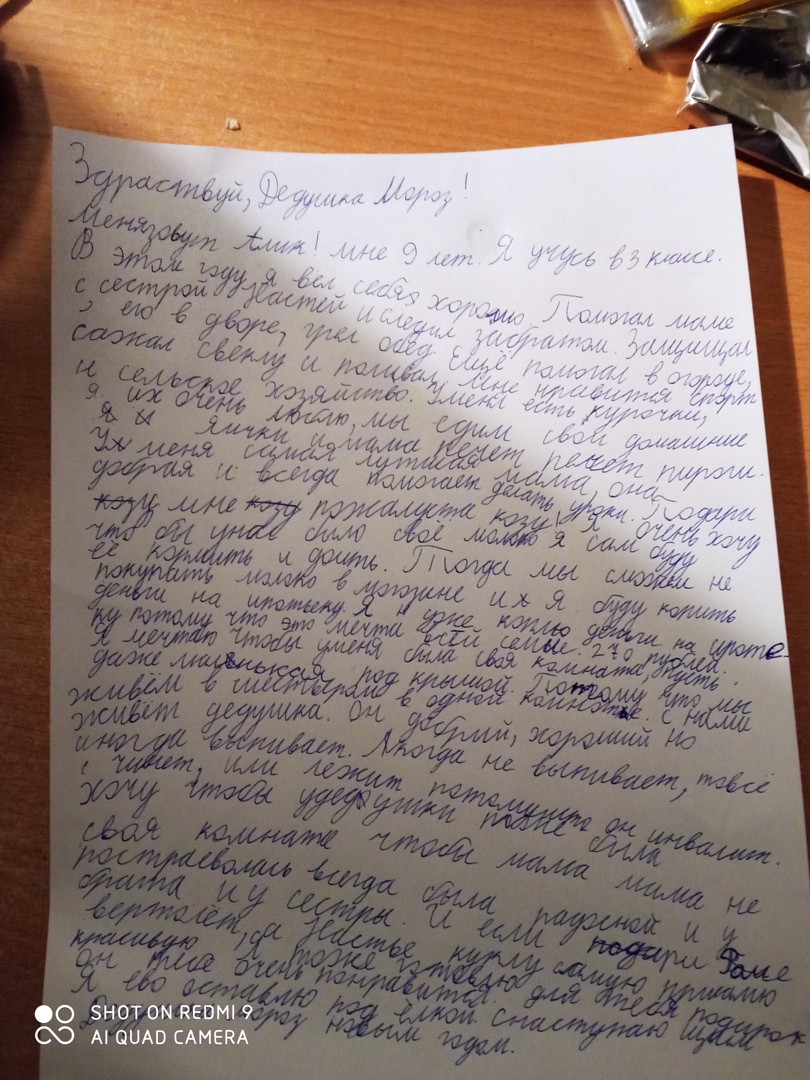 Здраствуй, Дедушка Мороз!
Менязовут Алик! мне 9 лет. Я учусь в 3 класе.
В этом году я вёл себя хорошо Помогал маме
с сестрой Настей и следил забратом. Защищал
его в дворе, грел обед. Ещё помогал в огороде,
сажал свёклу и поливал, мне нравится спорт
и сельское хозяйство. Уменя есть курочки,
я их очень люблю, мы едим свои домашние
яички и мама печет печет пироги.
У меня самая лутшая мама, она
добрая и всегда помогает делать уроки. Подари
козу мне козу пожалуста козу! Я очень хочу
что бы унас было своё молоко я сам буду
её кормить и доить. Тогда мы сможем не
покупать молоко в магазине их я буду копить
деньги на ипотеку. Я и уже коплю деньги на ипоте-
ку потому что это мечта всей семье. 270 рублей.
Я мечтаю чтобы уменя была своя комната, пусть
даже маленькая под крышой. Потому что мы
живём в шестьром в одной комноте. С нами
живёт дедушка. Он добрый, хороший но
иногда выпивает. Акогда не выпивает, товсё
чинет, или лежит потомушто он инвалит.
Хочу чтобы удедушки тоже была
своя комната чтобы мама мама не
растраевалась всегда была радосной и у
брата и у сестры. И если подари Роме
вертолёт, да Настье куклу самую
красивую, я тоже готовлю для тебя подарок
он тебе очень понравится.
Я ево оставлю под ёлкой. снаступаю щим
Дедушка Мороз новым годом.
SHOT ON REDMI 9
AI QUAD CAMERA